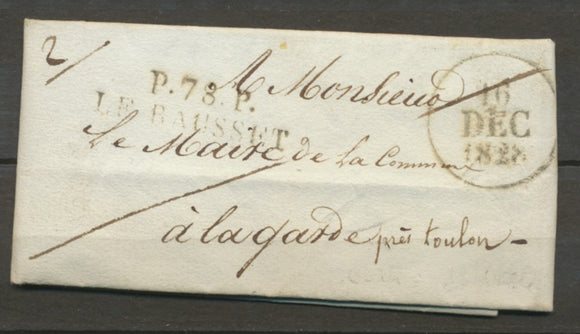 2/
P.78.P.
LE BAUSSET
A Monsieur
16
DEC
1828
Le Maire de La Commune
à la garde près toulon